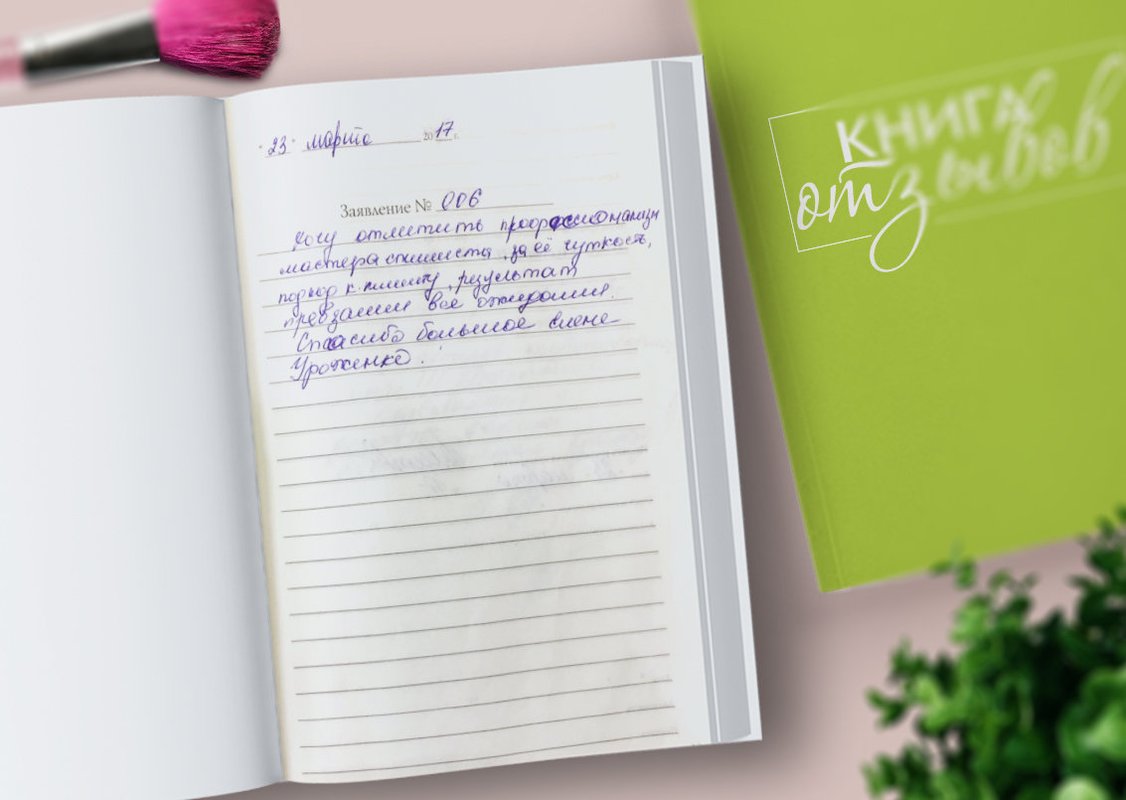 "23" марта 2017 г.
Заявление № 006
Хочу отметить профессионализм
мастера стилиста, за её чуткость,
подход к клиенту, результат
превзашёл все ожидания.
Спасибо большое Елене
Уроженко.
КНИГА
отзывов